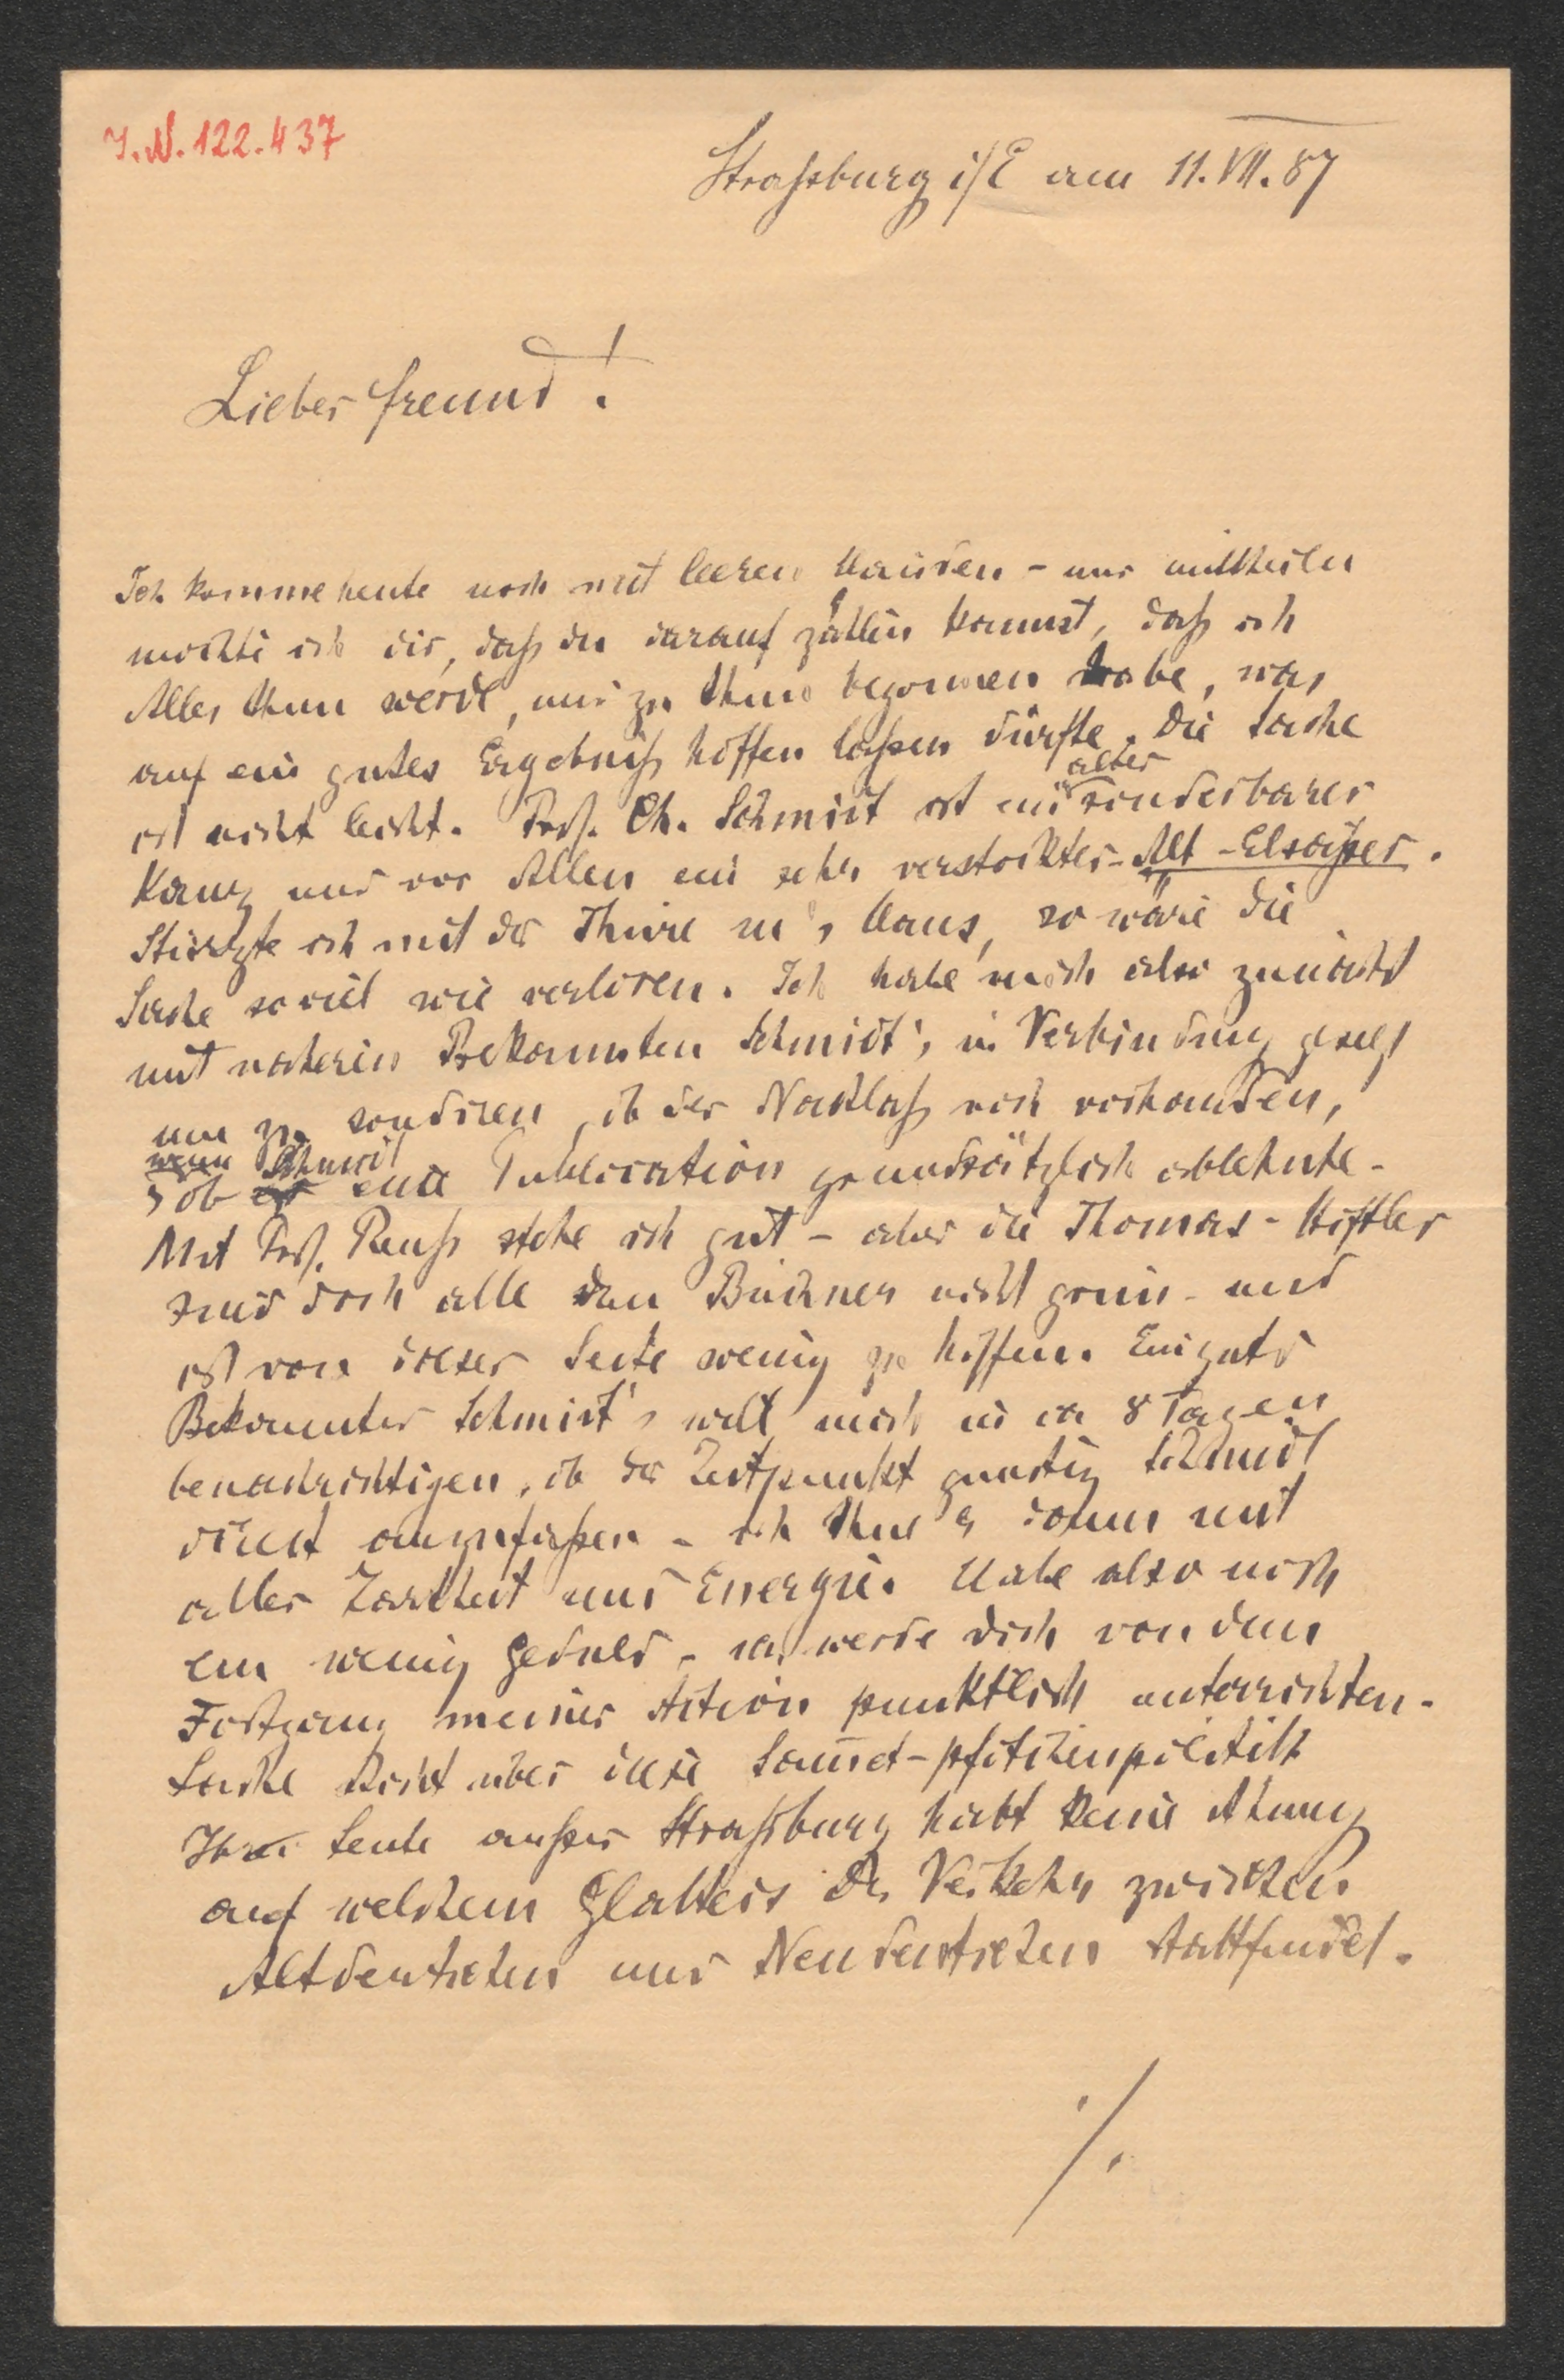 I.N. 122.437
Straßburg i/E am 11. VII. 87
Lieber Freund!
Ich komme heute noch mit leeren Händen - nur mittheilen
möchte ich dir, daß du darauf zählen kannst, daß ich
Alles thun werde, und zu thun begonnen habe, was
auf ein gutes Ergebniß hoffen laßen dürfte. Die Sache
ist nicht leicht. Prof. Ch. Schmidt ist ein alter sonderbarer
Kauz und vor Allen ein sehr verstockter - Alt-Elsaßer.
Stürzte ich mit der Thüre in's Haus, so wäre die
Sache so viel wie verloren. Ich habe mich also zunächst
mit näheren Bekannten Schmidt's in Verbindung gesetzt
um zu sondiren, ob der Nachlaß noch vorhanden,
wenn Schmidt
ob er eine Publication grundsätzlich ablehnte -
Mit Prof. Reuß stehe ich gut - aber die Thomas-Stiftler
sind doch alle dem Büchner nicht grün - und
ist von dieser Seite wenig zu hoffen. Ein guter
Bekannter Schmidt's will mich in ca 8 Tagen
benachrichtigen, ob der Zeitpunkt günstig Schmidt
direct anzufaßen - ich thue es dann mit
aller Zartheit und Energie. Habe also noch
ein wenig Geduld - ich werde dich von dem
Fortgang meiner Action pünktlich unterrichten -
Lache nicht über diese Sammet-pfötchenpolitik
Ihr Leute außer Straßburg habt keine Ahnung
auf welchem Glatteis der Verkehr zwischen
Altdeutschen und Neudeutschen stattfindet.
./.